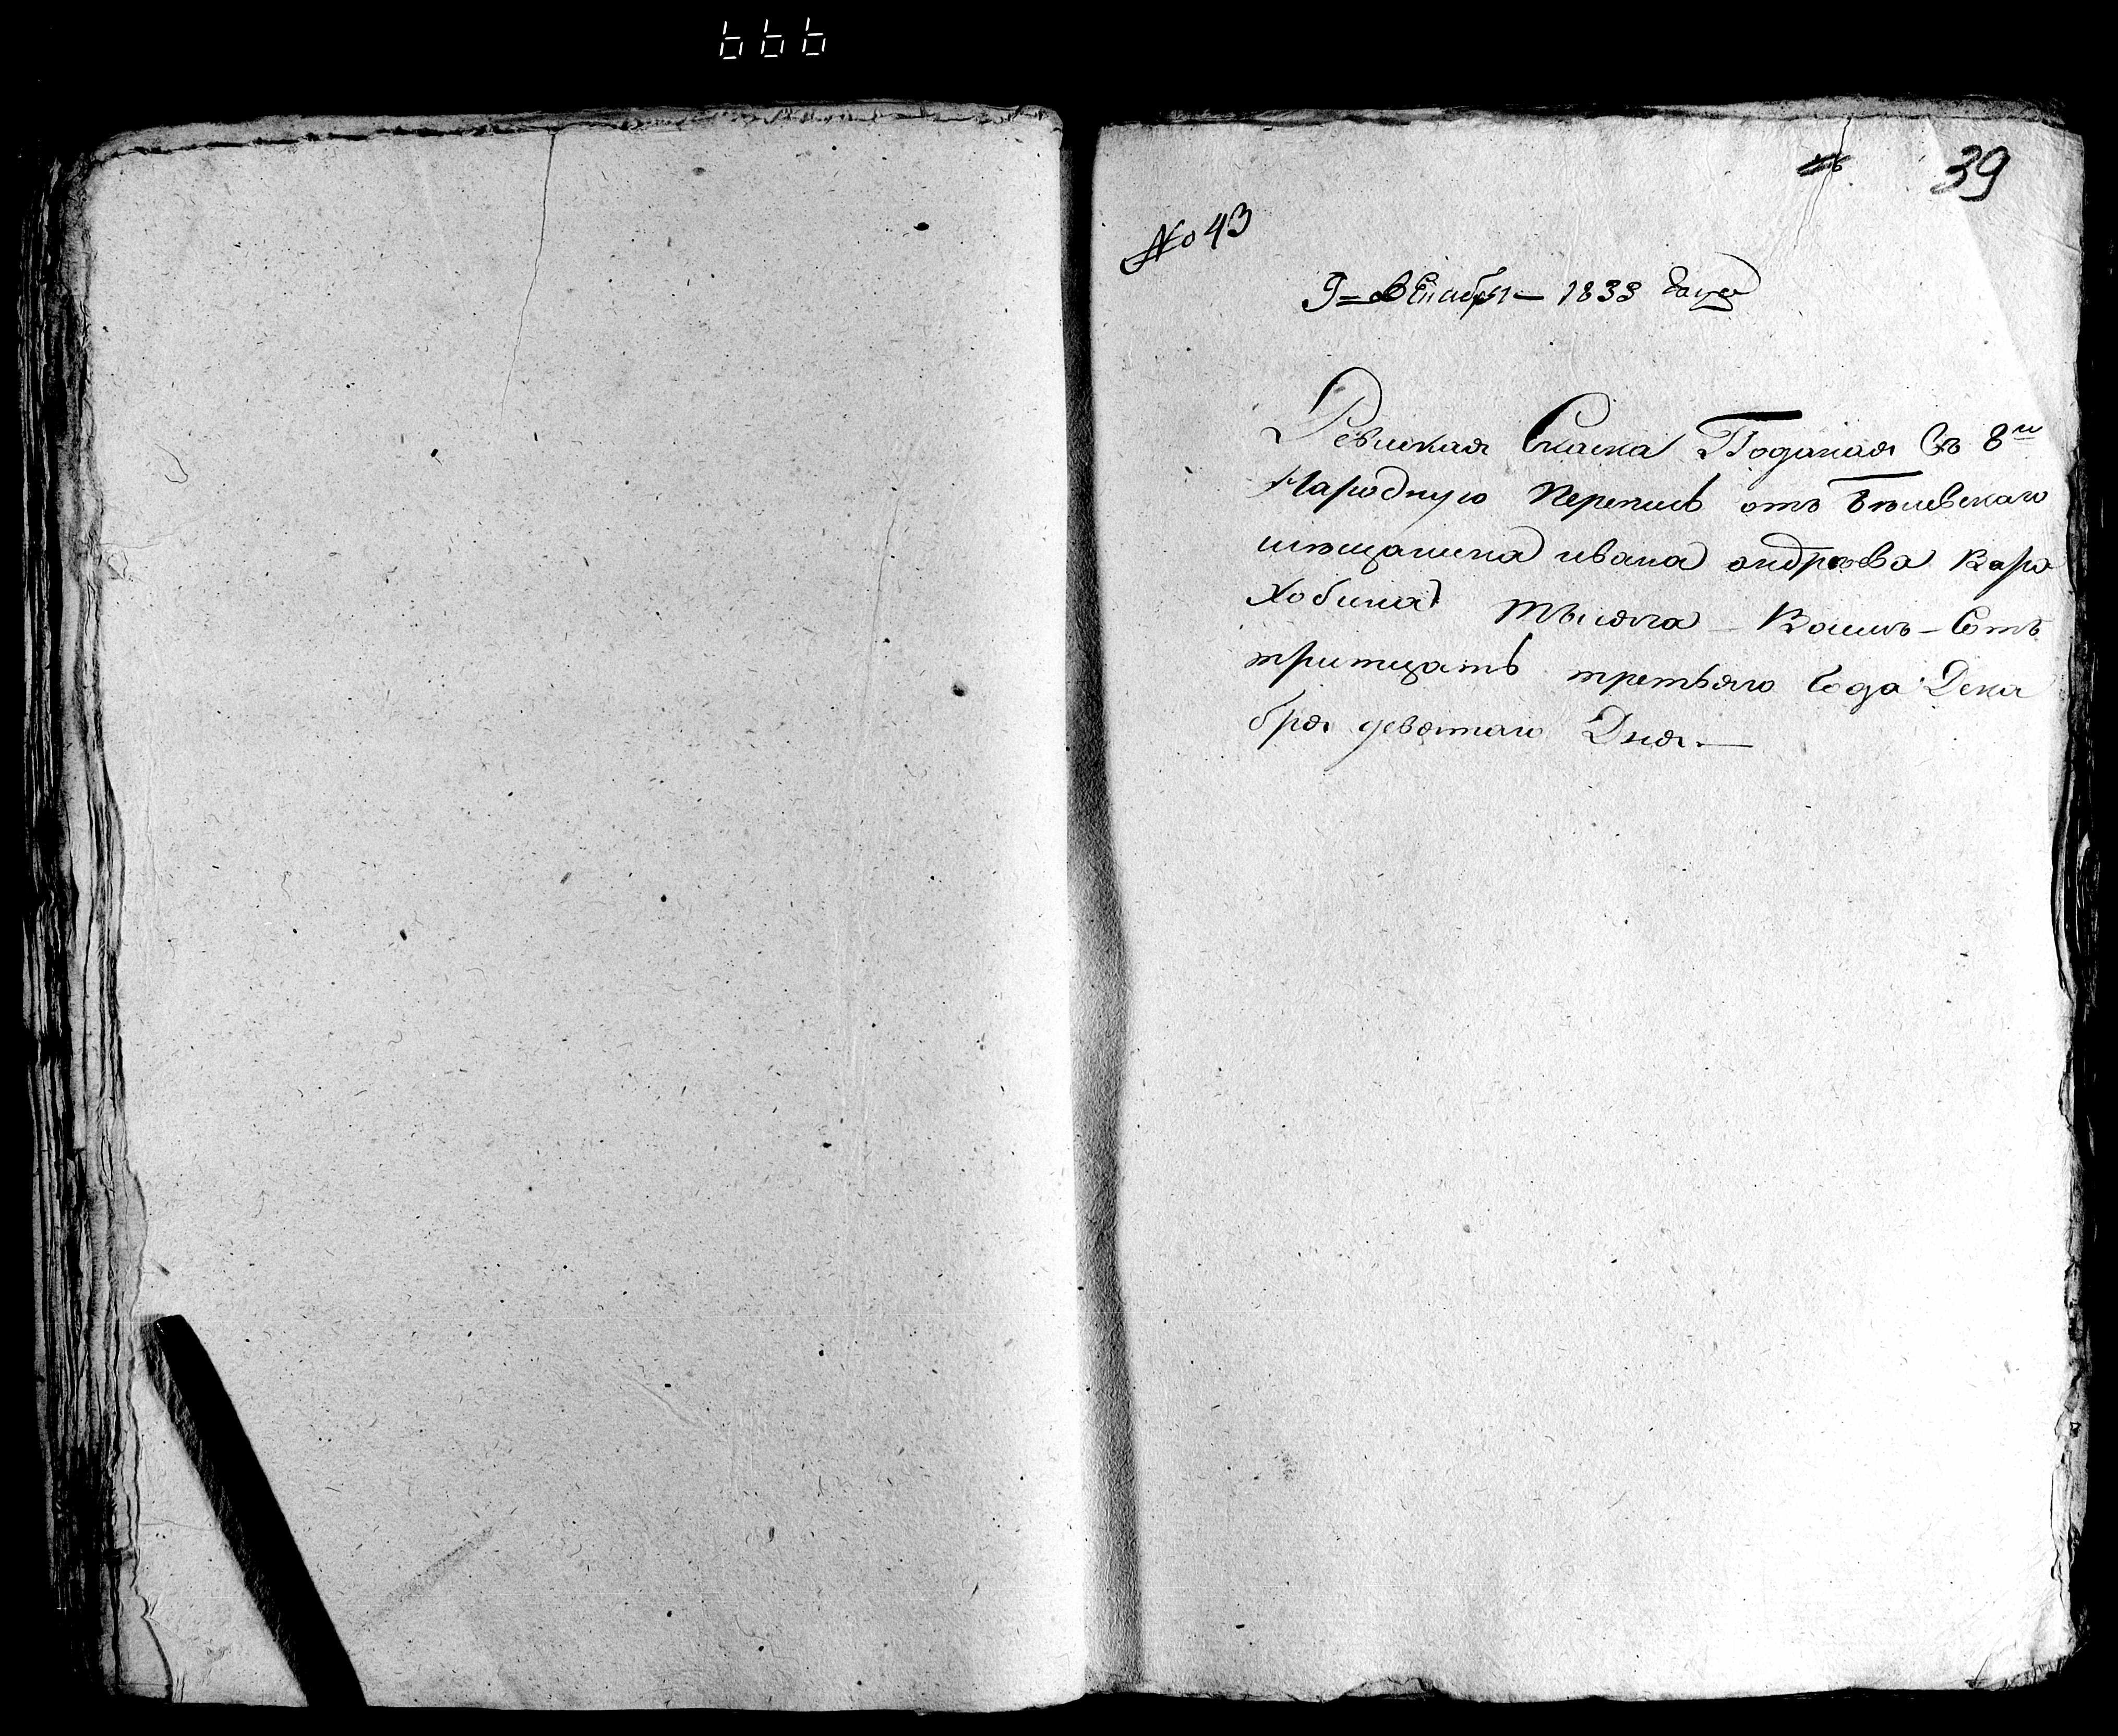 666
39
№ 43
9 = декабря — 1833 года
Ревиская Скаска Поданая Въ 8ю
Народную Перепись отъ Бѣлевскаго
мѣщанина ивана андрѣева Каро
хобина тысяча — Восимъ — Сотъ
тритцать третьяго Года Дека
бря девятаго Дня. —